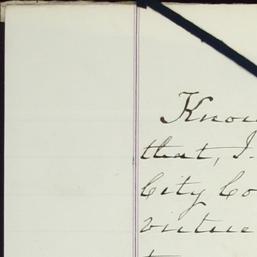 Know
that, I
City Co
virtue